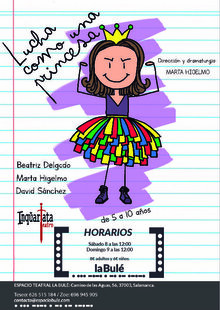 Lucha
como una
princesa
Dirección y dramaturgia
MARTA HIGELMO
Beatriz Delgado
Marta Higelmo
David Sánchez
Tragaluz
teatro
de 5 a 10 años
HORARIOS
Sábado 8 a las 12:00
Domingo 9 a las 12:00
8€ adultos y 6€ niños
laBulé
ESPACIO TEATRAL LA BULÉ: Camino de las Aguas, 56, 37003, Salamanca.
contacto@espaciobule.com